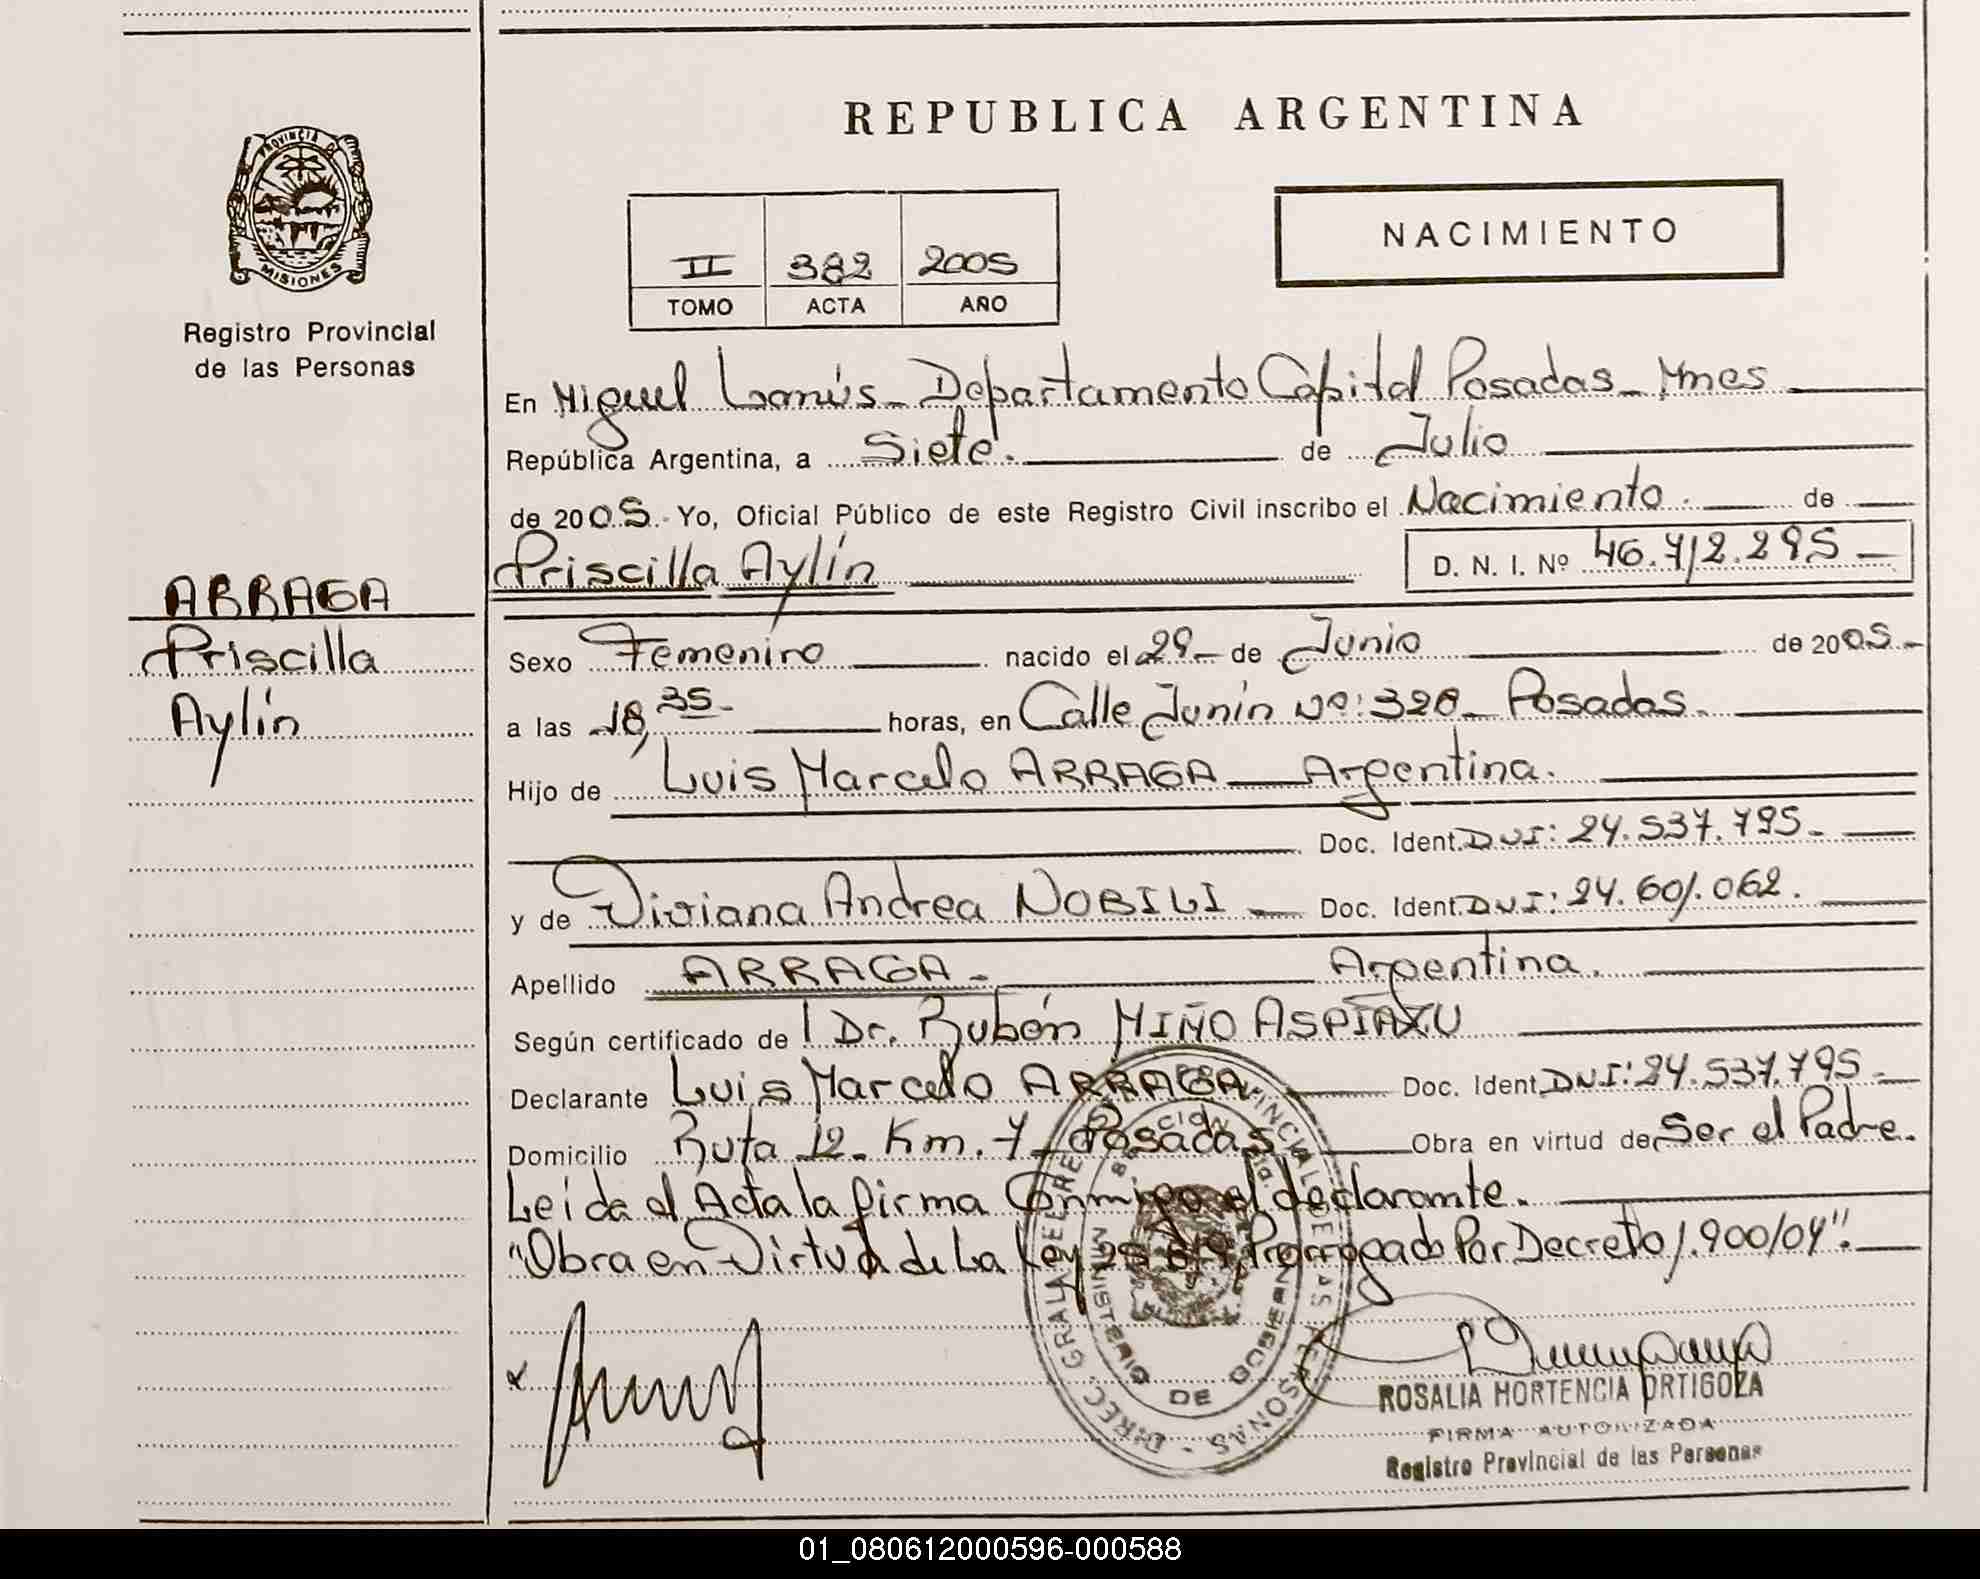 PROVINCIA DE
MISIONES
Registro Provincial
de las Personas
ARRAGA
Priscilla
Aylín
REPUBLICA ARGENTINA
II 382 2005
TOMO ACTA AÑO
NACIMIENTO
En Miguel Lanús - Departamento Capital Posadas - Mnes
República Argentina, a Siete. de Julio
de 2005 - Yo, Oficial Público de este Registro Civil inscribo el Nacimiento. de
Priscilla Aylín D. N. I. Nº 46.712.295
Sexo Femenino nacido el 29 de Junio de 2005
a las 18,35 horas, en Calle Junín Nº: 328 - Posadas.
Hijo de Luis Marcelo ARRAGA - Argentina.
Doc. Ident. DNI: 24.537.795.
y de Viviana Andrea NOBILI - Doc. Ident. DNI: 24.601.062.
Apellido ARRAGA - Argentina.
Según certificado de Dr. Rubén MIÑO ASPIAZU
Declarante Luis Marcelo ARRAGA Doc. Ident. DNI: 24.537.795
Domicilio Ruta 12 - Km. 7 - Posadas Obra en virtud de Ser el Padre.
Leida el Acta la firma Conmigo el declarante.
"Obra en Virtud de La Ley Prorrogado Por Decreto 1.900/04".
DIREC. GRAL. DEL REG. PROVINCIAL DE LAS PERSONAS
MINISTERIO DE GOBIERNO
ROSALIA HORTENCIA ORTIGOZA
FIRMA AUTORIZADA
Registro Provincial de las Personas
01_080612000596-000588